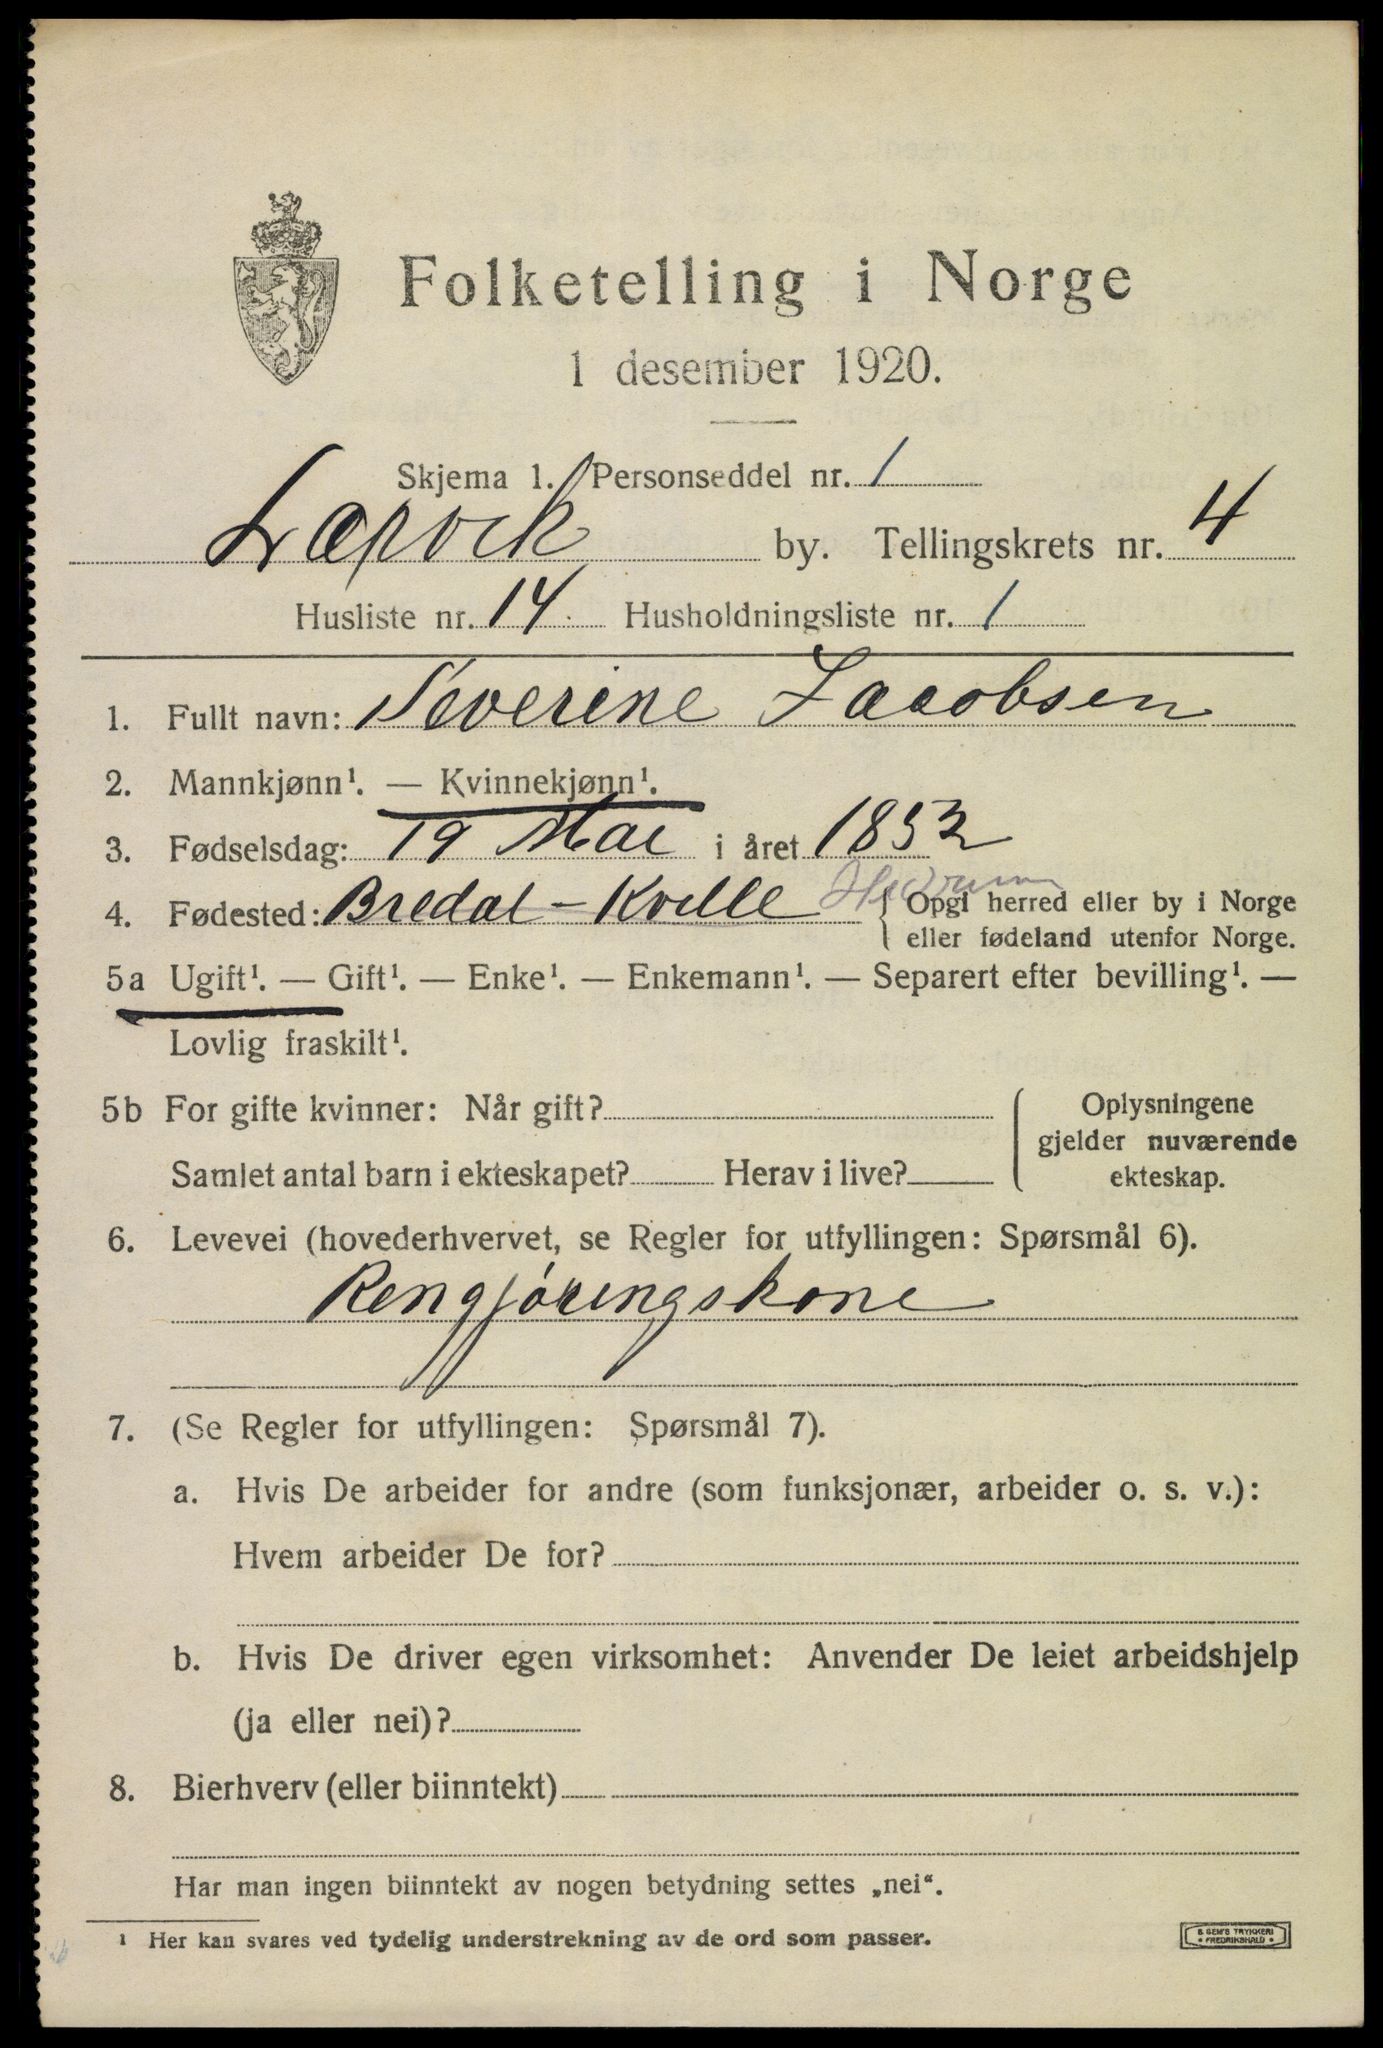 Folketelling i Norge
1 desember 1920.
Skjema 1. Personseddel nr. 1
Larvik by. Tellingskrets nr. 4
Husliste nr. 14. Husholdningsliste nr. 1
1. Fullt navn: Severine Jacobsen
2. Mannkjønn¹. — Kvinnekjønn¹.
3. Fødselsdag: 19 Mai i året 1852
4. Fødested: Bredal - Kvelle Hedrum { Opgi herred eller by i Norge
eller fødeland utenfor Norge.
5a Ugift¹. — Gift¹. — Enke¹. — Enkemann¹. — Separert efter bevilling¹. —
Lovlig fraskilt¹.
5b For gifte kvinner: Når gift? Oplysningene
gjelder nuværende
Samlet antal barn i ekteskapet? Herav i live? ekteskap.
6. Levevei (hovederhvervet, se Regler for utfyllingen: Spørsmål 6).
Rengjøringskone
7. (Se Regler for utfyllingen: Spørsmål 7).
a. Hvis De arbeider for andre (som funksjonær, arbeider o. s. v.):
Hvem arbeider De for?
b. Hvis De driver egen virksomhet: Anvender De leiet arbeidshjelp
(ja eller nei)?
8. Bierhverv (eller biinntekt)
Har man ingen biinntekt av nogen betydning settes „nei“.
¹ Her kan svares ved tydelig understrekning av de ord som passer.
TRYKKERI
FREDRIKSHALD